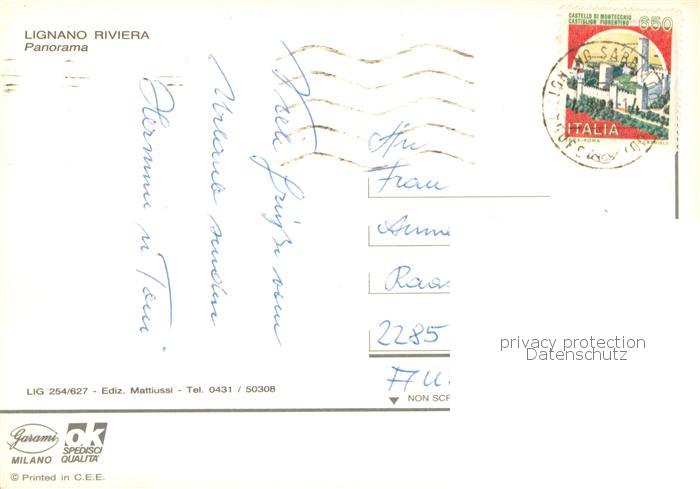 LIGNANO RIVIERA
Panorama
CASTELLO DI MONTECCHIO
CASTIGLION FIORENTINO
650
ITALIA
LIGNANO SABB
Viele Grüße vom
Urlaub senden
Hermine u Toni
An
Frau
Anne
Raa
2285
AU
privacy protection
Datenschutz
LIG 254/627 - Ediz. Mattiussi - Tel. 0431 / 50308
NON SCR
Garami
MILANO
ok
SPEDISCI
QUALITA'
© Printed in C.E.E.